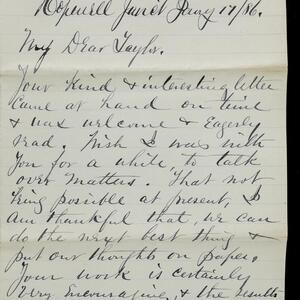 Hopewell Junct Jany 17/86.
My Dear Taylor.
Your kind & interesting letter
came at hand on time
& was welcome & eagerly
read. Wish I was with
you for a while to talk
over matters. That not
being posible at present, I
am thankful that we can
do the next best thing &
put our thoughts on paper.
Your work is certainly
very encouraging, & the results